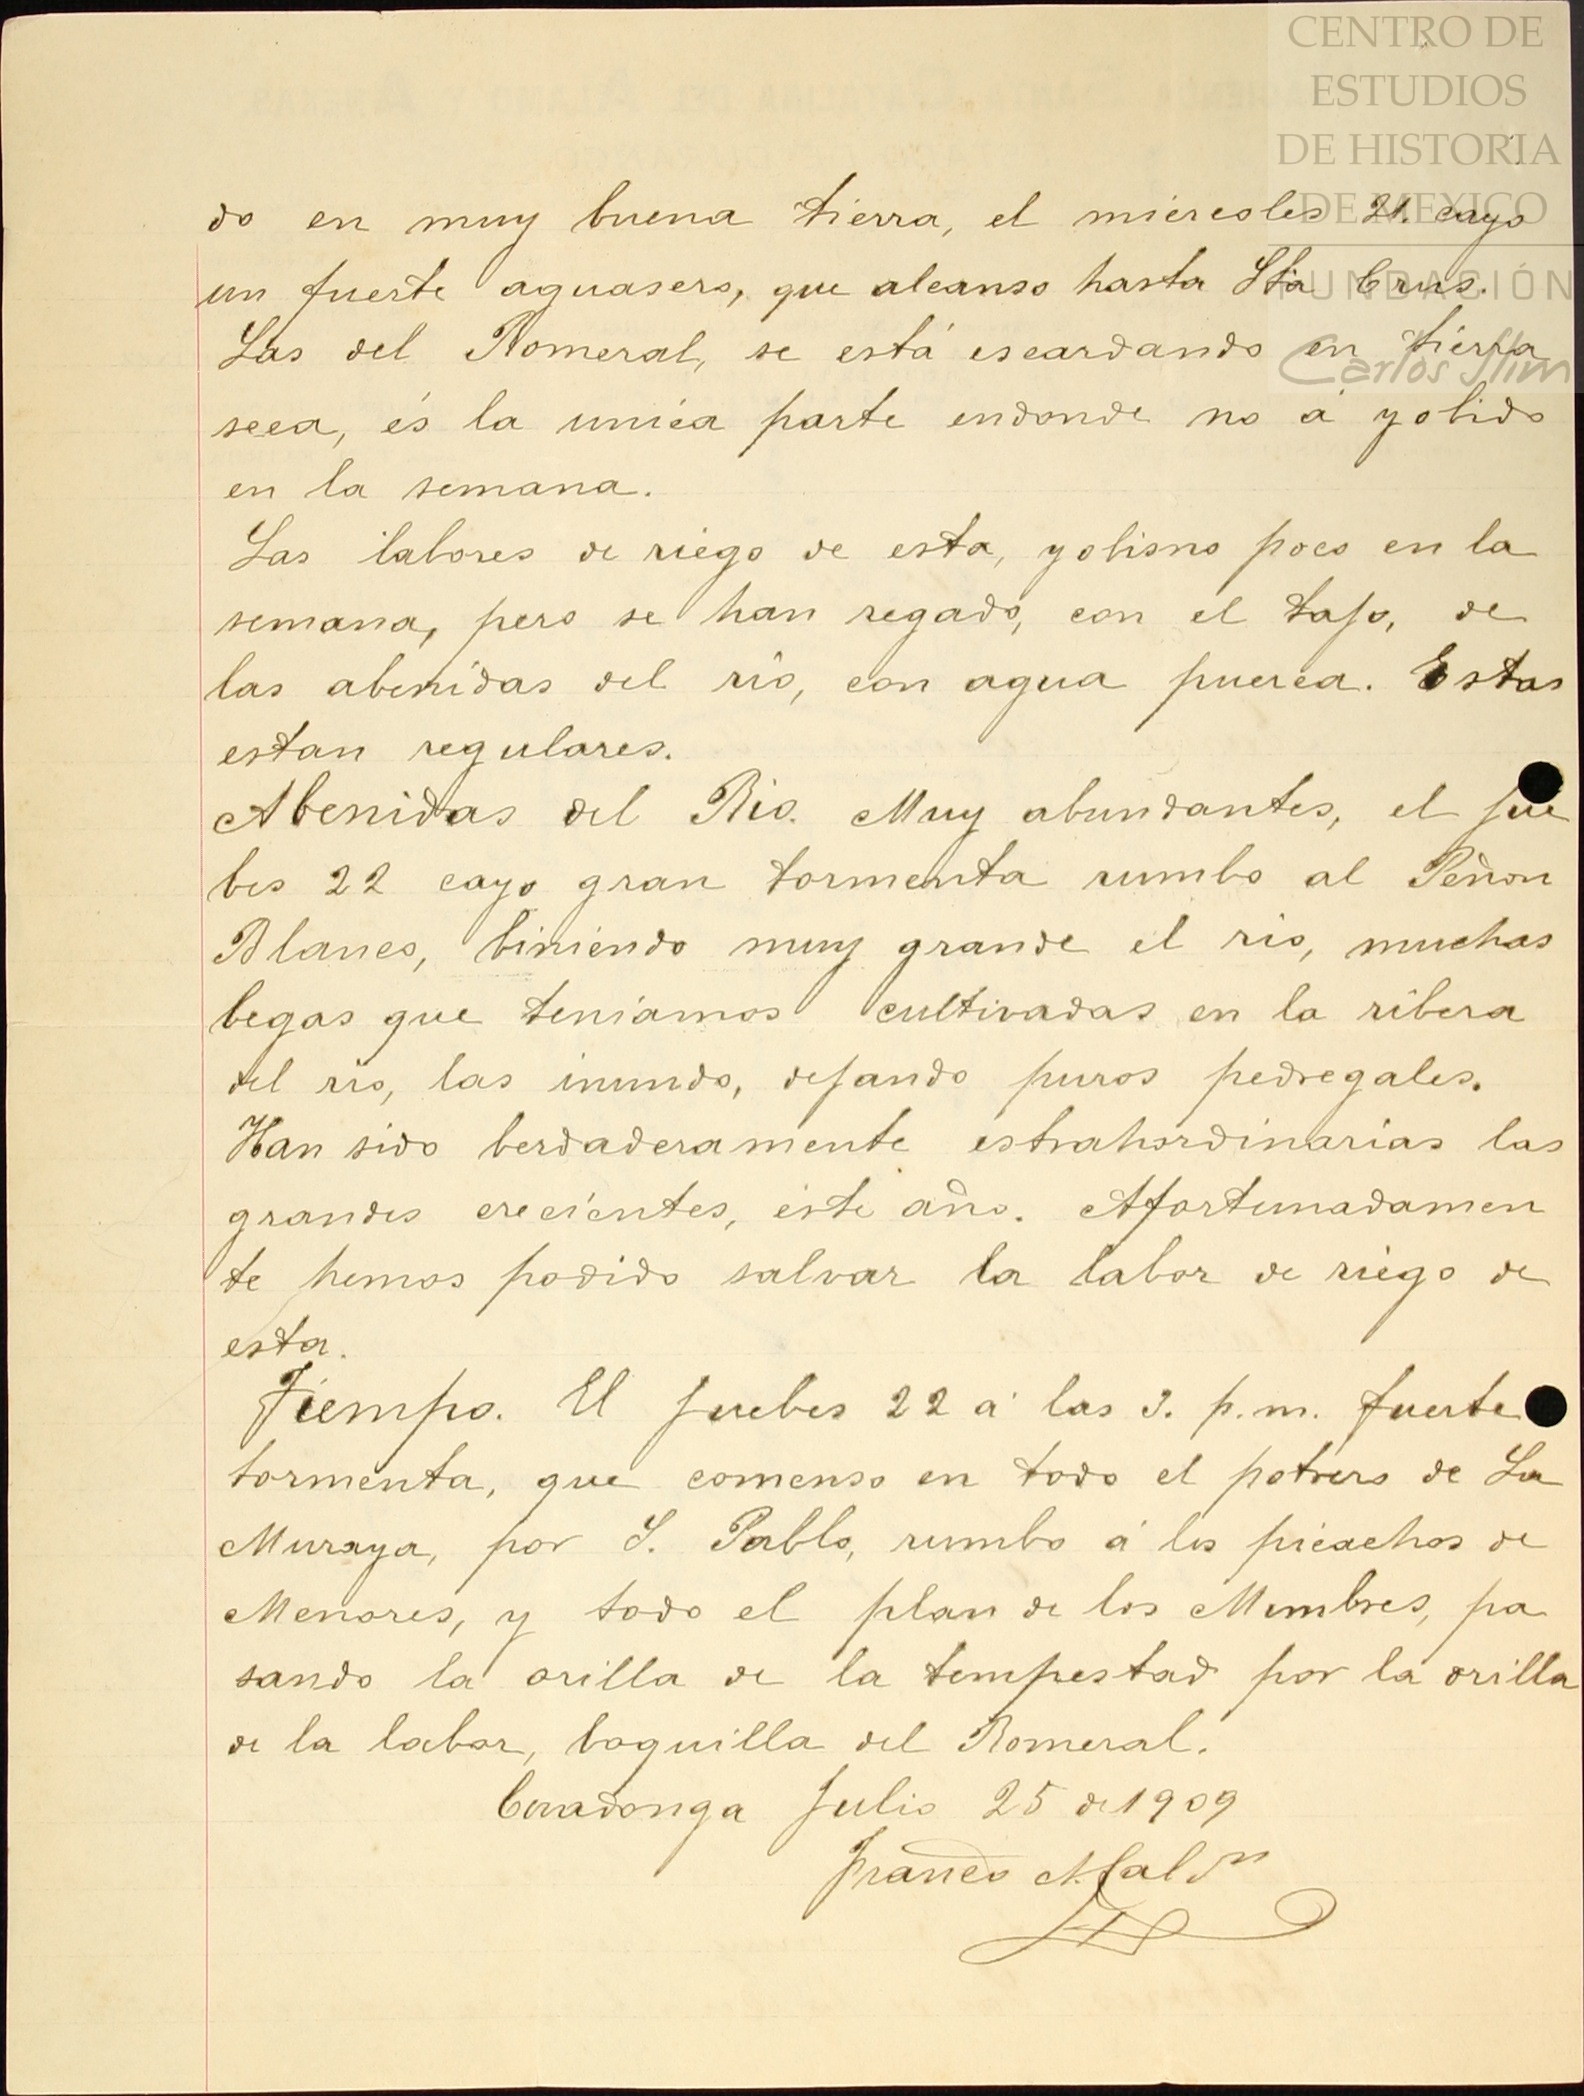 CENTRO DE
ESTUDIOS
DE HISTORIA
DE MEXICO
FUNDACIÓN
Carlos Slim
do en muy buena tierra, el miercoles 21. cayo
un fuerte aguasero, que alcanso hasta Sta Crus.
Las del Romeral, se está escardando en tierra
seca, és la unica parte endonde no á yobido
en la semana.
Las labores de riego de esta, yobisno poco en la
semana, pero se han regado, con el tajo, de
las abenidas del rio, con agua puerca. Estas
estan regulares.
Abenidas del Rio. Muy abundantes, el jue
bes 22 cayo gran tormenta rumbo al Peñon
Blanco, biniendo muy grande el rio, muchas
begas que teniamos cultivadas en la ribera
del rio, las inundo, dejando puros pedregales.
Han sido berdaderamente estrahordinarias las
grandes crecientes, éste año. Afortunadamen
te hemos podido salvar la labor de riego de
esta.
Tiempo. El juebes 22 á las 3. p.m. fuerte
tormenta, que comenso en todo el potrero de La
Muraya, por S. Pablo, rumbo á los picachos de
Menores, y todo el plan de los Mimbres, pa
sando la orilla de la tempestad por la orilla
de la labor, boquilla del Romeral.
Covadonga Julio 25 de 1909
Franco